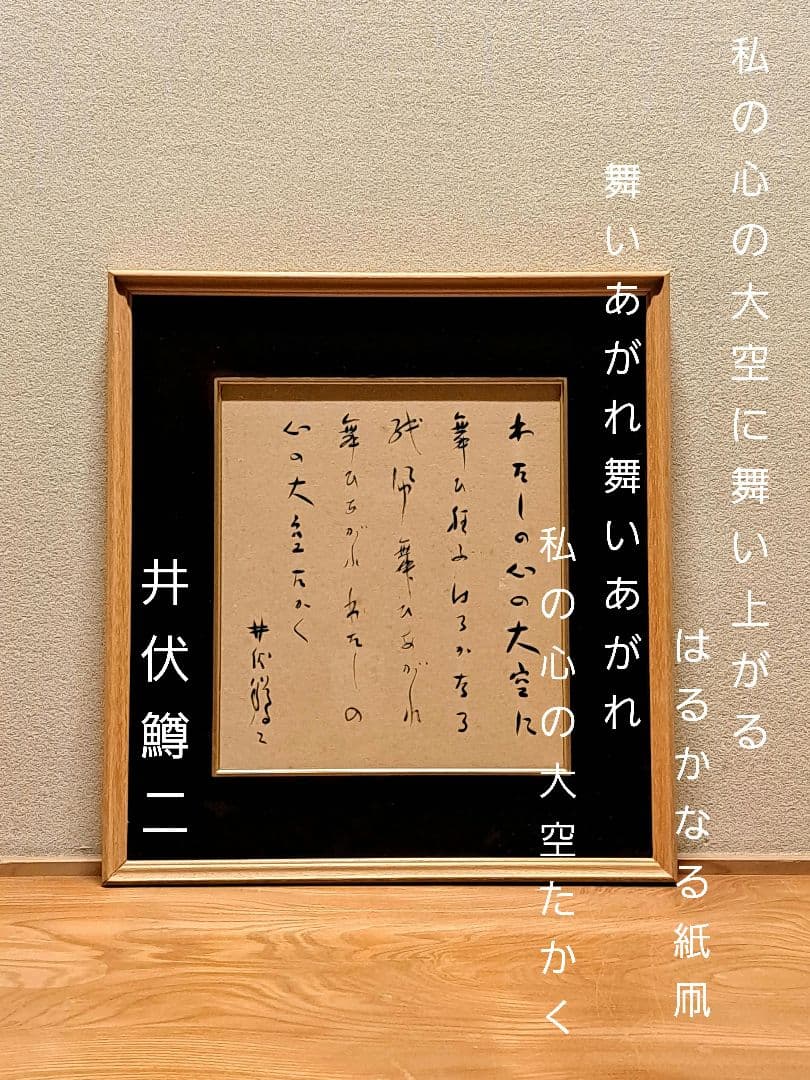 私の心の大空に舞い上がる
はるかなる紙凧
舞いあがれ舞いあがれ
私の心の大空たかく
井伏鱒二
わたしの心の大空に
舞ひ狂ふはるかなる
紙凧舞ひあがれ
舞ひあがれわたしの
心の大空たかく
井伏鱒二